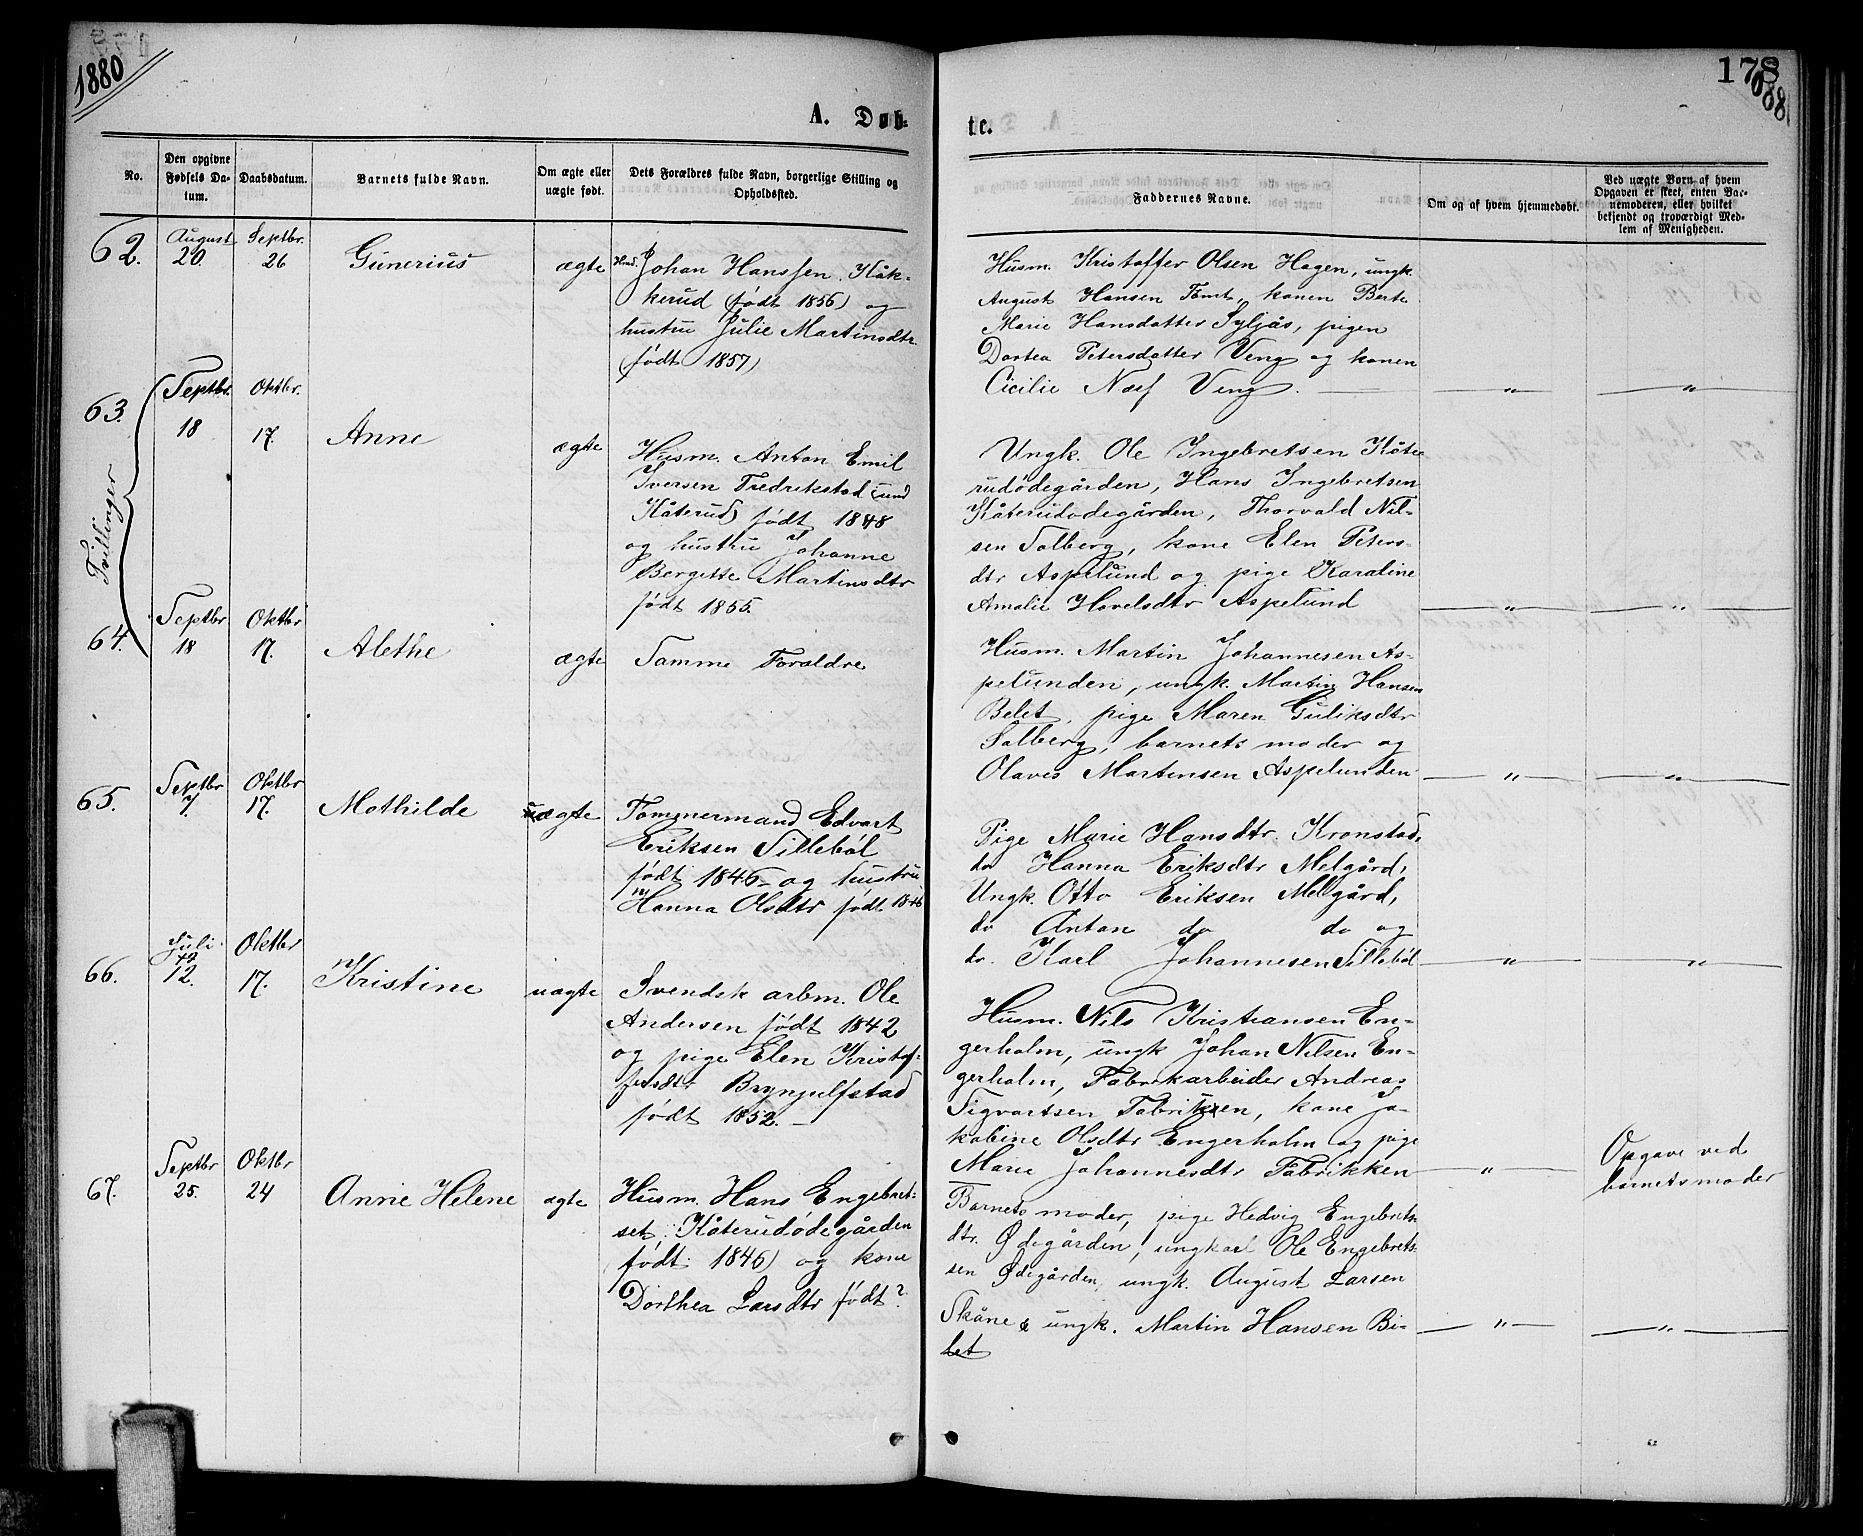 1880
178
A. Døb-
te.
No.
Den opgivne
Fødsels Da-
tum.
Daabsdatum.
Barnets fulde Navn.
Om ægte eller
uægte født.
Dets Forældres fulde Navn, borgerlige Stilling og
Opholdssted.
Faddernes Navne.
Om og af hvem hjemmedøbt.
Ved uægte Born af hvem
Opgaven er skeet, enten Bar-
nemoderen, eller hvilket
bekjendt og troværdigt Med-
lem af Menigheden.
62.
August
20.
Septbr.
26
Gunerius
ægte
Johan Hanssen Kåk-
kerud (født 1856) og
hustru Julie Martinsdtr.
(født 1857)
Husm. Kristoffer Olsen Hagen, ungk.
August Hansen Tomt, konen Berte
Marie Hansdatter Syljås, pigen
Dortea Petersdatter Veng og konen
Cicilie Næs Veng.
"
"
Tvillinger
63.
Septbr.
18
Oktbr.
17.
Anne
ægte
Husm. Anton Emil
Iversen Fredrikstad und
Kåterud født 1848
og hustru Johanne
Bergette Martinsdtr
født 1855.
Ungk. Ole Ingebretsen Kåte
rudødegården, Hans Ingebretsen
Kåterudødegården, Thorvald Nil-
sen Solberg, kone Elen Peters-
dtr Aspelund og pige Karaline
Amalie Hovelsdtr Aspelund
"
"
64.
Septbr
18
Oktbr
17.
Alethe
ægte
Samme Forældre
Husm. Martin Johannesen As-
pelunden, ungk. Martin Hansen
Belet, pige Maren Guliksdtr
Solberg, barnets moder og
Olaves Martinsen Aspelunden
"
"
65.
Septbr
7.
Oktbr
17.
Mathilde
uægte
Tømmermand Edvart
Eriksen Sillebøl
født 1846 og hustru
Hanna Olsdtr født 1846
Pige Marie Hansdtr. Kronstad,
do Hanna Eriksdtr Melgård,
Ungk. Otto Eriksen Melgård,
do Anton do do og
do. Karl Johannesen Sillebøl
"
"
66.
Juli
12.
Oktbr
17.
Kristine
uægte
Svendsk arbm. Ole
Andersen født 1842
og pige Elen Kristof-
fersdtr Brynjulfstad
født 1852.
Husm. Nils Kristiansen En-
gerholm, ungk Johan Nilsen En-
gerholm, Fabrikarbeider Andreas
Sigvartsen Fabrikken, kone Ja-
kobine Olsdtr Engerholm og pige
Marie Johannesdtr Fabrikken
"
Opgave ved
barnets moder
67.
Septbr
25.
Oktbr
24
Anne Helene
ægte
Husm. Hans Engebret-
set, Kåterudødegården
(født 1846) og kone
Dorthea Larsdtr født?
Barnets moder, pige Hedvig Engebrets
dtr. Ødegården, ungkarl Ole Engebrets-
sen Ødegården, ungk. August Larsen
Skåne & ungk. Martin Hansen Bi-
let
"
"